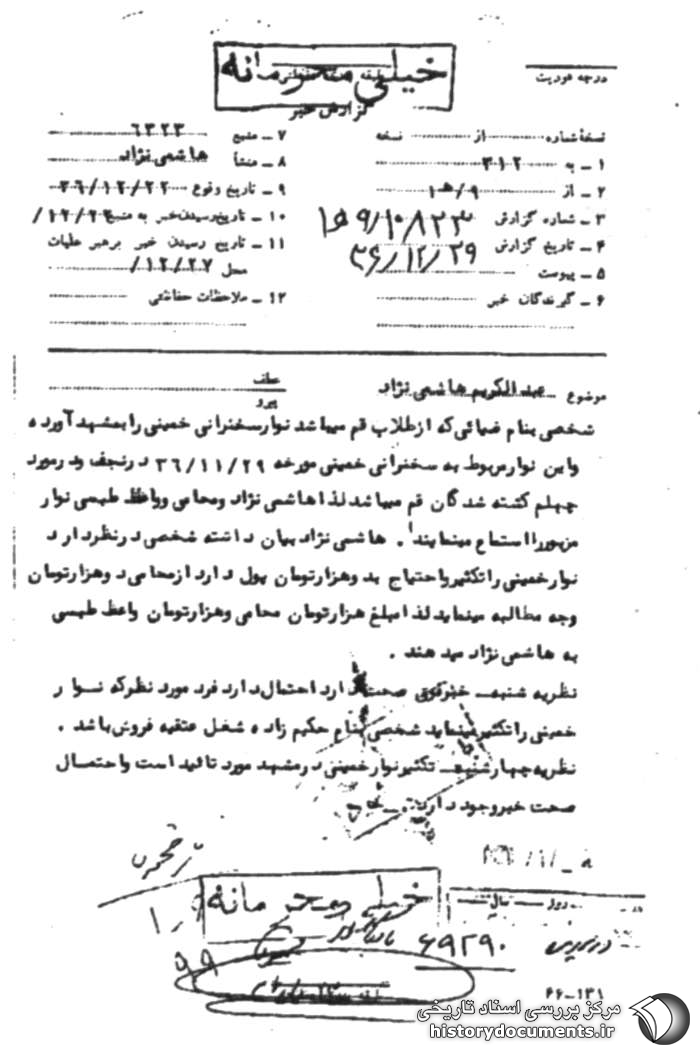 خیلی محرمانه
درجه فوریت
گزارش خبر
نسخهٔ شماره از نسخه
۱ ـ به ۳۱۲
۲ ـ از ۹/ه۱
۳ ـ شماره گزارش
۴ ـ تاریخ گزارش ۳۶/۱۲/۲۹
۵ ـ پیوست
۶ ـ گیرندگان خبر
۷ ـ منبع ۶۳۲۳
۸ ـ منشأ هاشمی نژاد
۹ ـ تاریخ وقوع ۳۶/۱۲/۲۲
۱۰ ـ تاریخ رسیدن خبر به منبع ۱۲/۲۳/
۱۱ ـ تاریخ رسیدن خبر برهبر عملیات
محل ۱۲/۲۷/
۱۲ ـ ملاحظات حفاظتی
موضوع عبدالکریم هاشمی نژاد
عطف
پیرو
شخصی بنام ضیائی که از طلاب قم میباشد نوار سخنرانی خمینی را بمشهد آورده
و این نوار مربوط به سخنرانی خمینی مورخه ۳۶/۱۱/۲۹ در نجف و در مورد
چهلم کشته شدگان قم میباشد لذا هاشمی نژاد و محامی و واعظ طبسی نوار
مزبور را استماع مینمایند . هاشمی نژاد بیان داشته شخصی در نظر دارد
نوار خمینی را تکثیر و احتیاج بدوهزار تومان پول دارد از محامی دوهزار تومان
وجه مطالبه مینماید لذا مبلغ هزار تومان محامی و هزار تومان واعظ طبسی
به هاشمی نژاد میدهند .
نظریه شنبه ـ خبر فوق صحت دارد احتمال دارد فرد مورد نظر که نوار
خمینی را تکثیر مینماید شخصی بنام حکیم زاده شغل عتیقه فروش باشد .
نظریه چهارشنبه ـ تکثیر نوار خمینی در مشهد مورد تائید است و احتمال
صحت خبر وجود دارد .
خیلی محرمانه
روز سال
۶۹۲۹۰
۹۹
۶۶-۱۳۱
مرکز بررسی اسناد تاریخی
historydocuments.ir